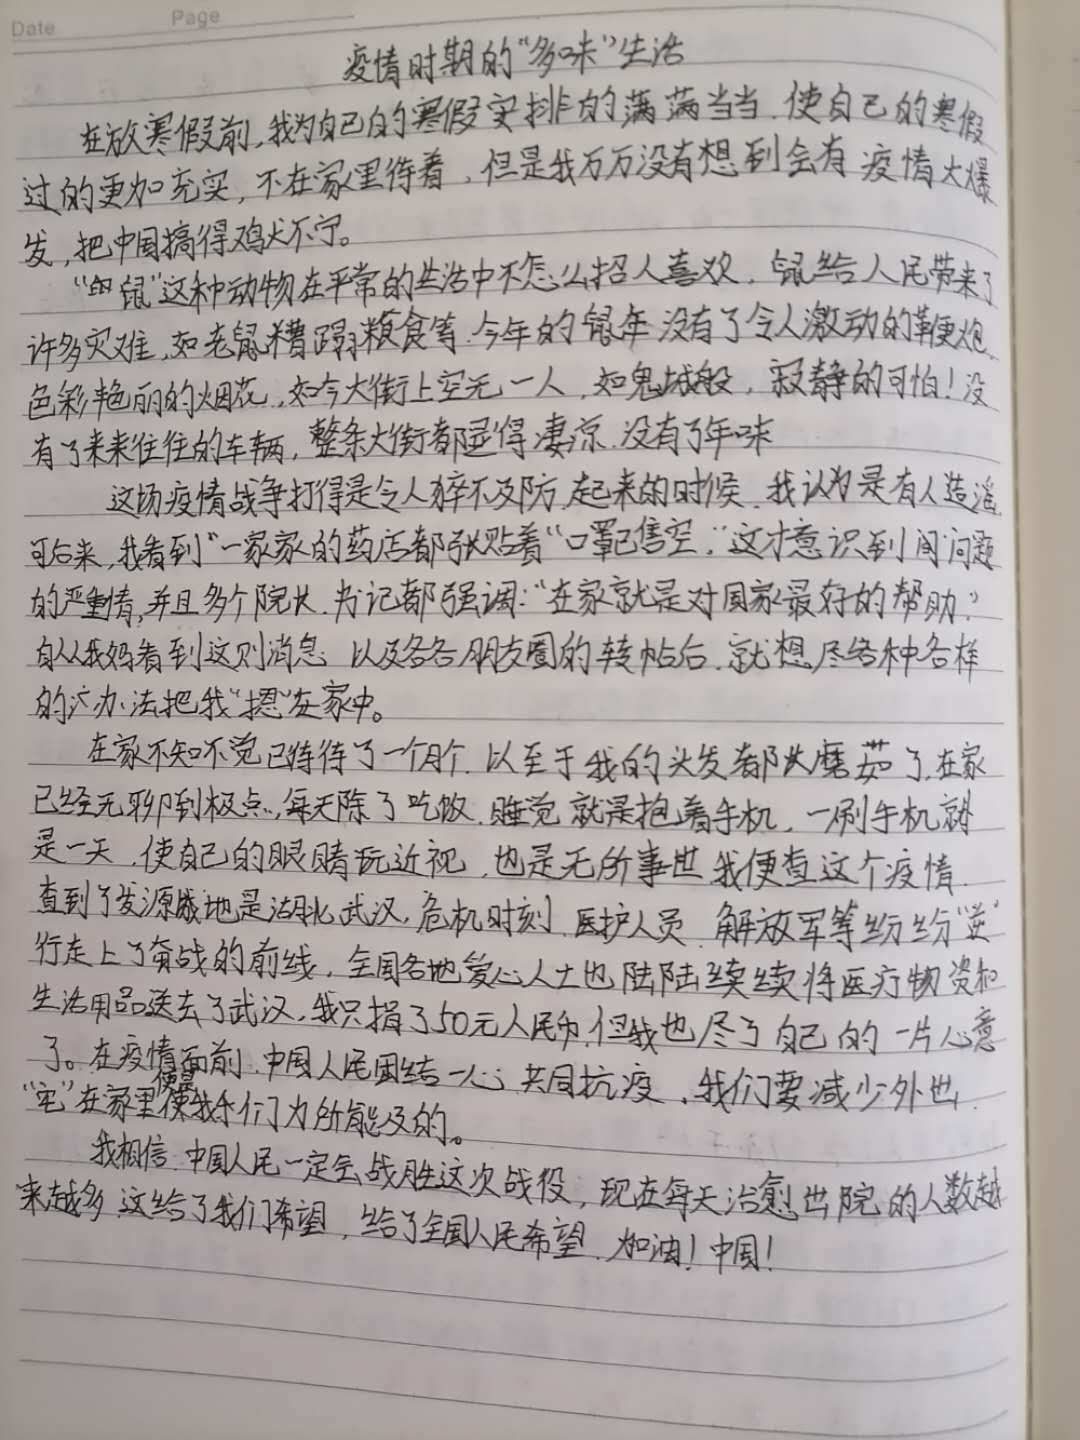 Date Page
疫情时期的“多味”生活
在放寒假前,我为自己的寒假安排的满满当当.使自己的寒假
过的更加充实,不在家里待着,但是我万万没有想到会有疫情大爆
发,把中国搞得鸡犬不宁。
“鼠”这种动物在平常的生活中不怎么招人喜欢,鼠给人民带来了
许多灾难,如老鼠糟蹋粮食等.今年的鼠年没有了令人激动的鞭炮、
色彩艳丽的烟花,如今大街上空无一人,如鬼城般,寂静的可怕!没
有了来来往往的车辆,整条大街都显得凄凉.没有了年味
这场疫情战争打得是令人猝不及防,起来的时候.我认为是有人造谣,
可后来,我看到“一家家的药店都张贴着“口罩已售空,”这才意识到问题
的严重情,并且多个院长.书记都强调:“在家就是对国家最好的帮助.”
自从我妈看到这则消息 以及各各朋友圈的转帖后.就想尽各种各样
的办法把我“摁”在家中。
在家不知不觉已待待了一个月个.以至于我的头发都长蘑菇了,在家
已经无聊到极点,每天除了吃饭.睡觉就是抱着手机,一刷手机就
是一天.使自己的眼睛玩近视,也是无所事世 我便查这个疫情.
查到了发源地是湖北武汉,危机时刻.医护人员.解放军等纷纷“逆”
行走上了奋战的前线,全国各地爱心人士也陆陆续续将医疗物资和
生活用品送去了武汉,我只捐了50元人民币,但我也尽了自己的一片心意
了。在疫情面前.中国人民团结一心 共同抗疫,我们要减少外出.
“宅”在家里便是我们力所能及的。
我相信.中国人民一定会战胜这次战役,现在每天治愈出院的人数越
来越多.这给了我们希望,给了全国人民希望.加油!中国!